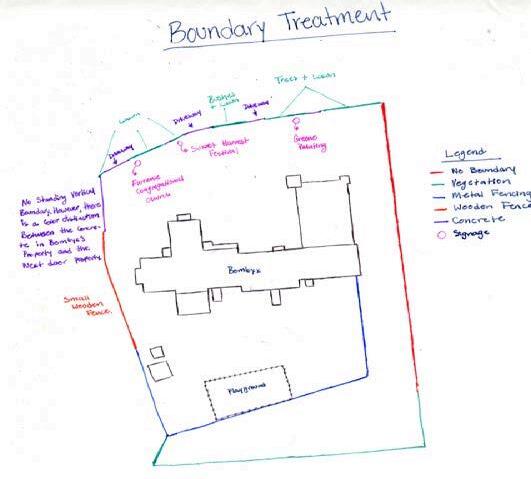 Boundary Treatment
Trees + Lawn
Bushes
+ Lawn
Lawn
Driveway
Driveway
Driveway
Sunset Harvest
Festival
Greene
Painting
Florence
Congregational
Church
Legend
No Boundary
Vegetation
Metal Fencing
Wooden Fence
Concrete
Signage
No Standing Vertical
Boundary. However, there
is a clear distinction
Between the Concre-
te in Bombyx's
Property and the
Next door Property.
Bombyx
Small
Wooden
Fence.
Playground